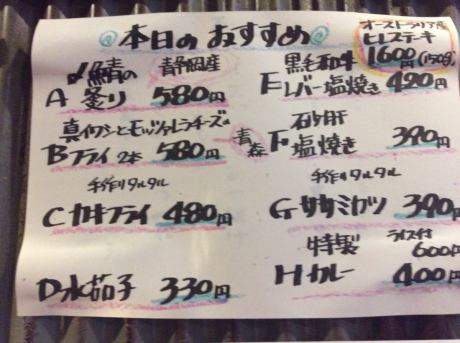 本日のおすすめ
オーストラリア産
ヒレステーキ
1600円(150g)
〆鯖の 静岡産
A 炙り 580円
真イワシとモッツァレラチーズの
Bフライ 2本 580円
手作りタルタル
Cカキフライ 480円
D水茄子 330円
黒毛和牛
Eレバー塩焼き 420円
青森
砂肝
F塩焼き 390円
手作りタルタル
Gササミカツ 390円
特製 ライス付 600円
Hカレー 400円